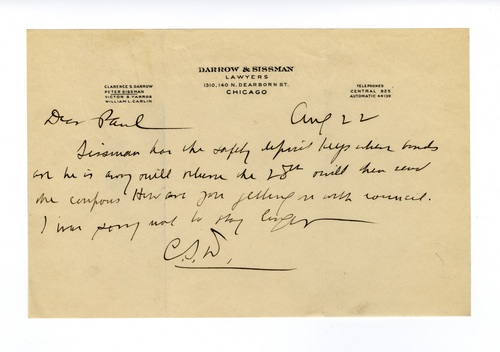 DARROW & SISSMAN
LAWYERS
1310, 140 N. DEARBORN ST.
CHICAGO
CLARENCE S. DARROW
PETER SISSMAN
VICTOR S. YARROS
WILLIAM L. CARLIN
TELEPHONES
CENTRAL 925
AUTOMATIC 44136
Dear Paul Aug 22
Sissman has the safety deposit keys where bonds
are he is away will return the 28th will then send
the coupons How are you getting on with council.
I was sorry not to stay longer
C.S.D.